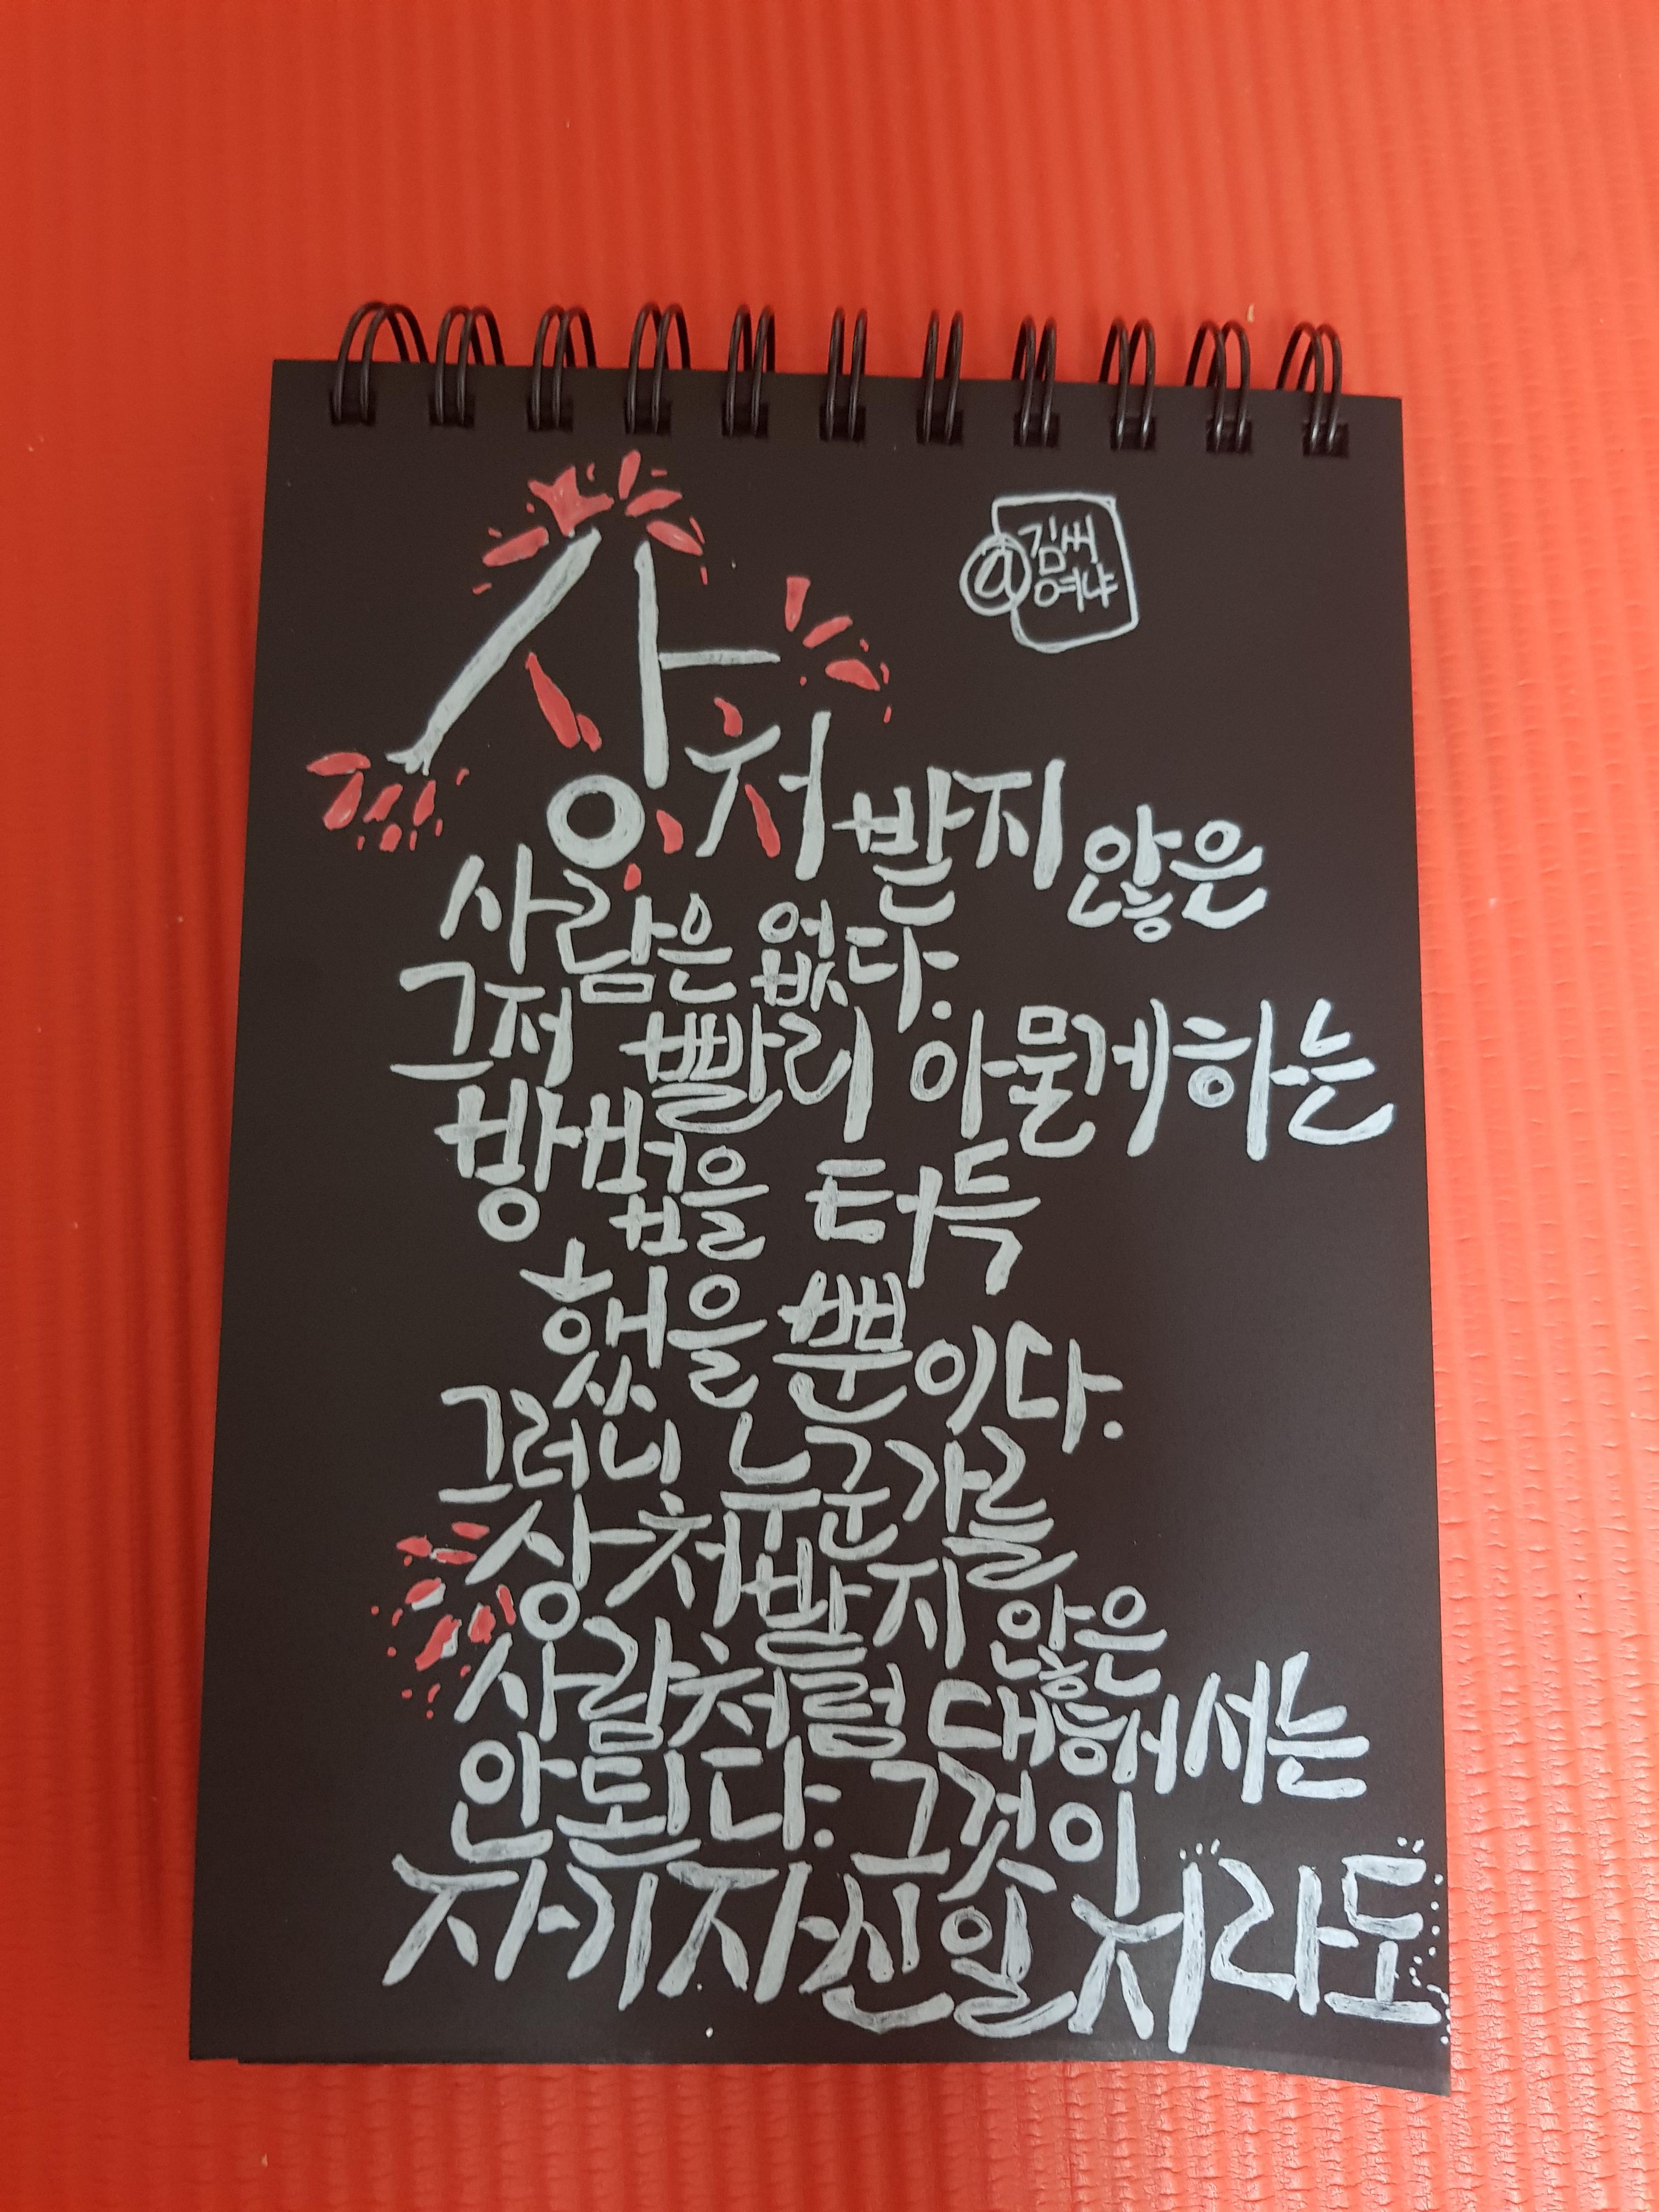 @김씨
여냐
상처받지 않은
사람은 없다.
그저 빨리 아물게하는
방법을 터득
했을 뿐이다.
그러니 누군가를
상처받지 않은
사람처럼 대해서는
안된다. 그것이
자기자신일지라도